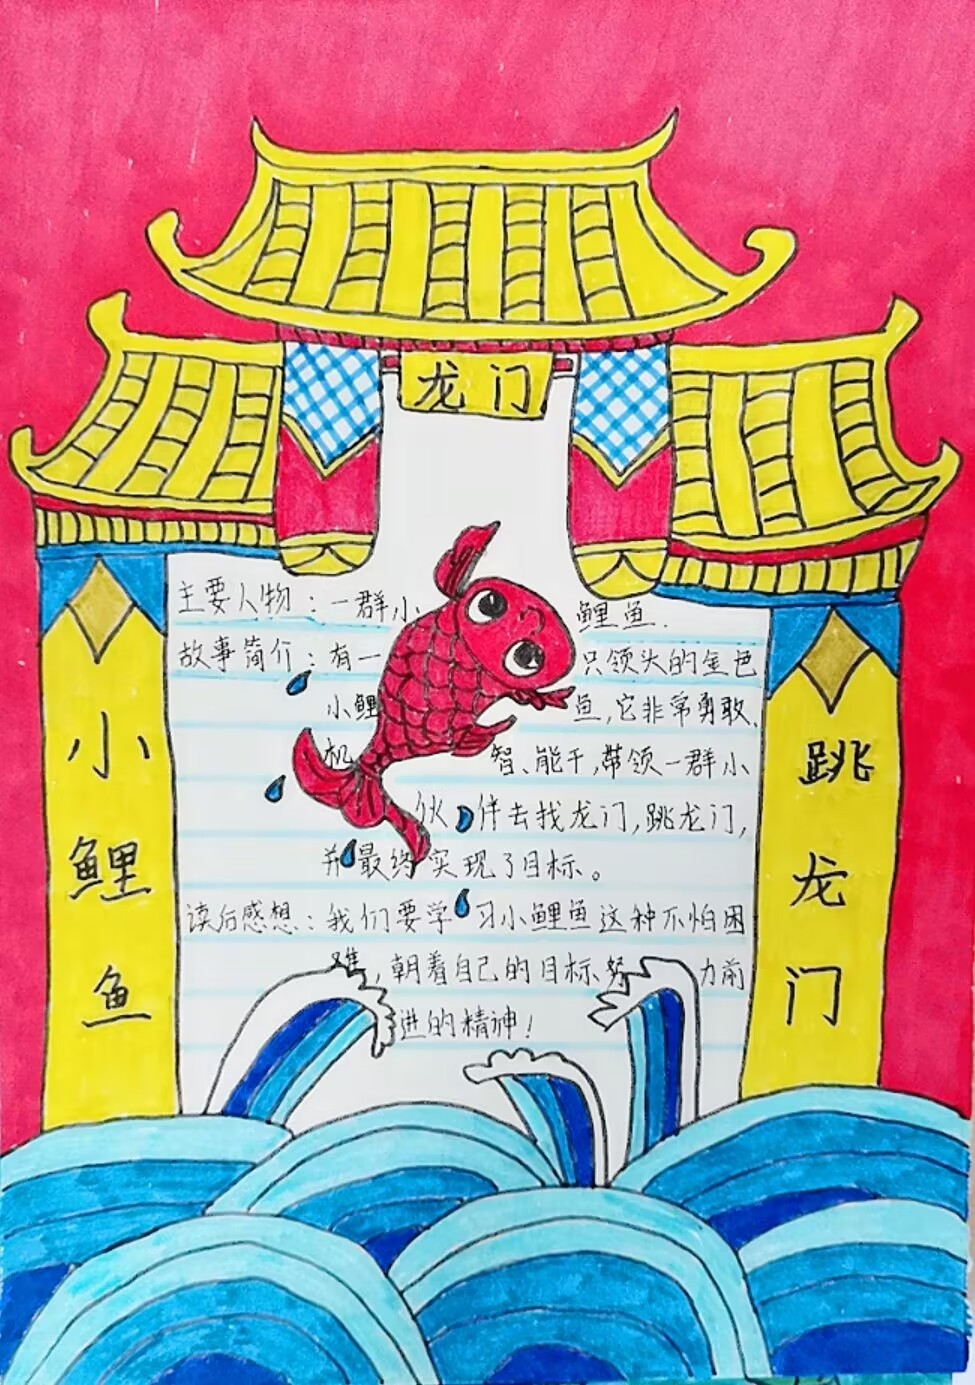 龙门
小鲤鱼
跳龙门
主要人物：一群小鲤鱼.
故事简介：有一只领头的金色
小鲤鱼,它非常勇敢、
机智、能干,带领一群小
伙伴去找龙门,跳龙门,
并最终实现了目标。
读后感想：我们要学习小鲤鱼这种不怕困
难,朝着自己的目标努力前
进的精神!